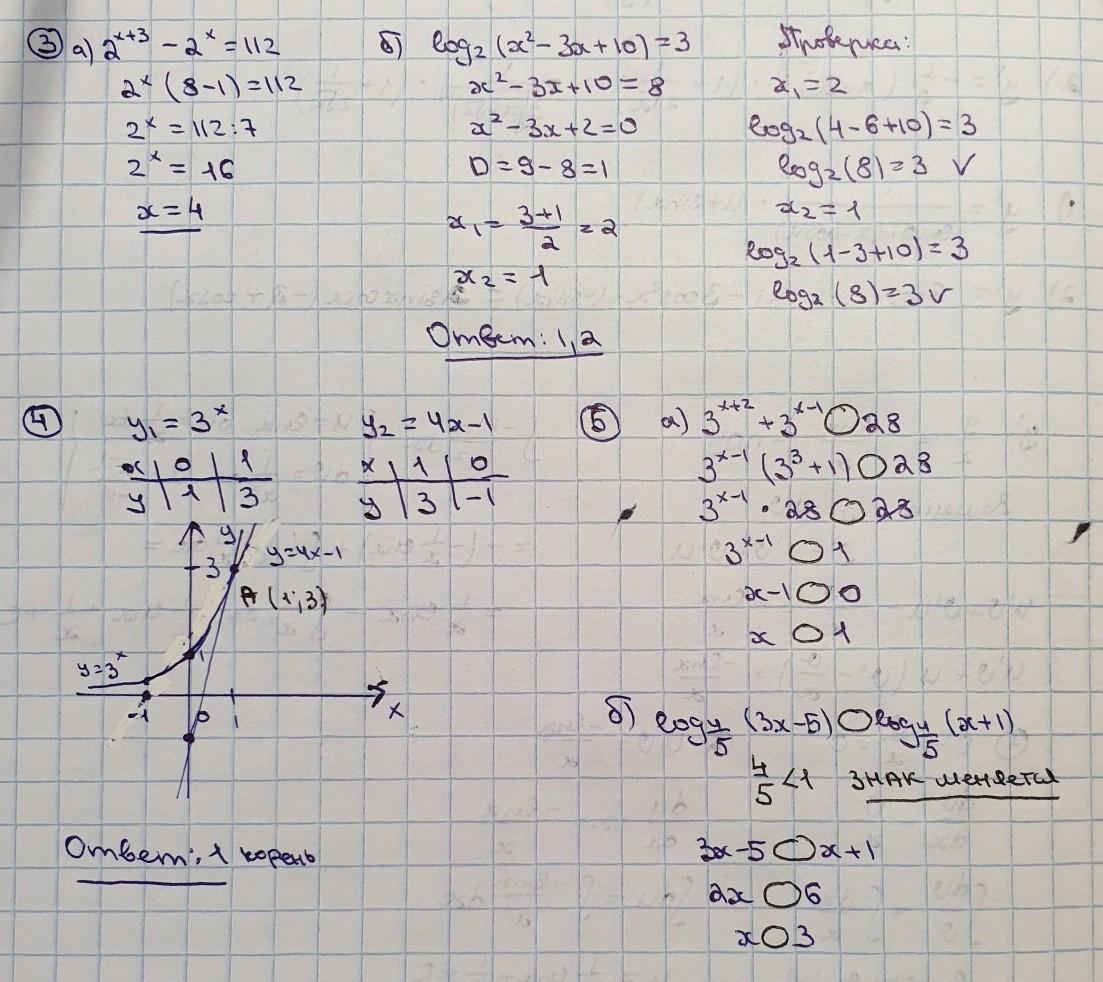 ③ а) 2^(x+3) − 2^x = 112
2^x (8−1) = 112
2^x = 112:7
2^x = 16
x = 4
б) log₂ (x² − 3x + 10) = 3
x² − 3x + 10 = 8
x² − 3x + 2 = 0
D = 9 − 8 = 1
x₁ = (3+1)/2 = 2
x₂ = 1
Проверка:
x₁ = 2
log₂ (4−6+10) = 3
log₂ (8) = 3 ✓
x₂ = 1
log₂ (1−3+10) = 3
log₂ (8) = 3 ✓
Ответ: 1, 2
④ y₁ = 3^x
x | 0 | 1
y | 1 | 3
y₂ = 4x−1
x | 1 | 0
y | 3 | −1
y
y=4x−1
3
A (1;3)
1
y=3^x
−1 0 1 x
Ответ: 1 корень
⑤ а) 3^(x+2) + 3^(x−1) ◯ 28
3^(x−1) (3³+1) ◯ 28
3^(x−1) · 28 ◯ 28
3^(x−1) ◯ 1
x−1 ◯ 0
x ◯ 1
б) log_(4/5) (3x−5) ◯ log_(4/5) (x+1)
4/5 < 1 ЗНАК меняется
3x−5 ◯ x+1
2x ◯ 6
x ◯ 3